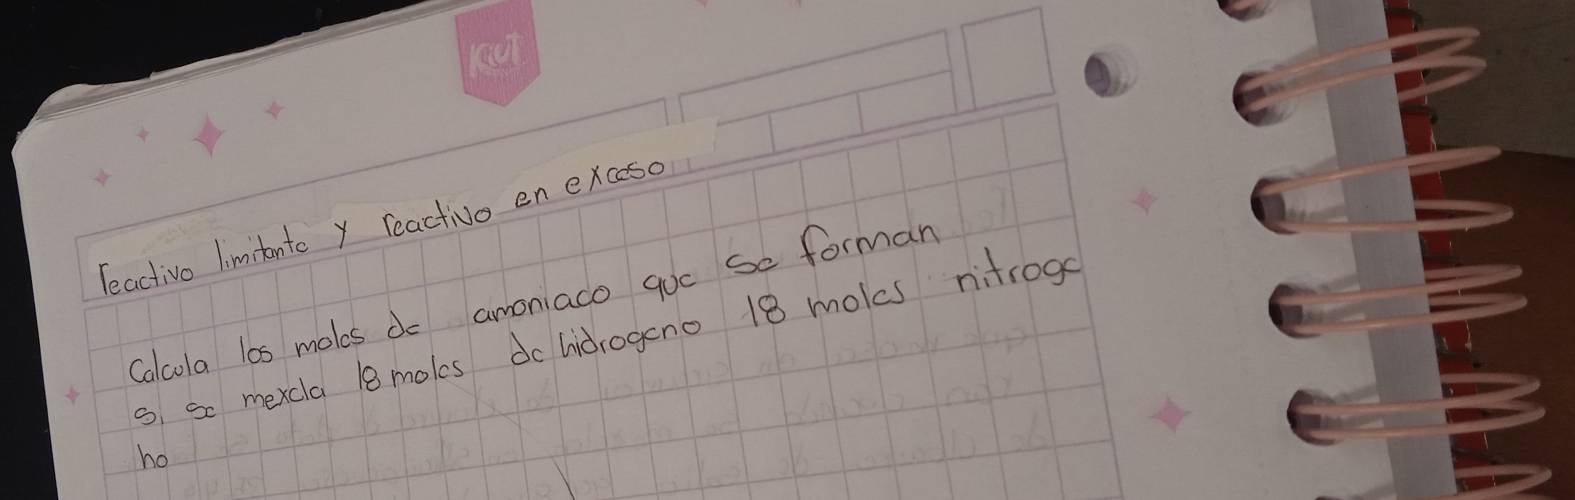 Kiut
reactivo limitante y reactivo en exceso
Calcula los moles de amoniaco que se forman
si se mexcla 18 moles de hidrogeno 18 moles nitroge
ho